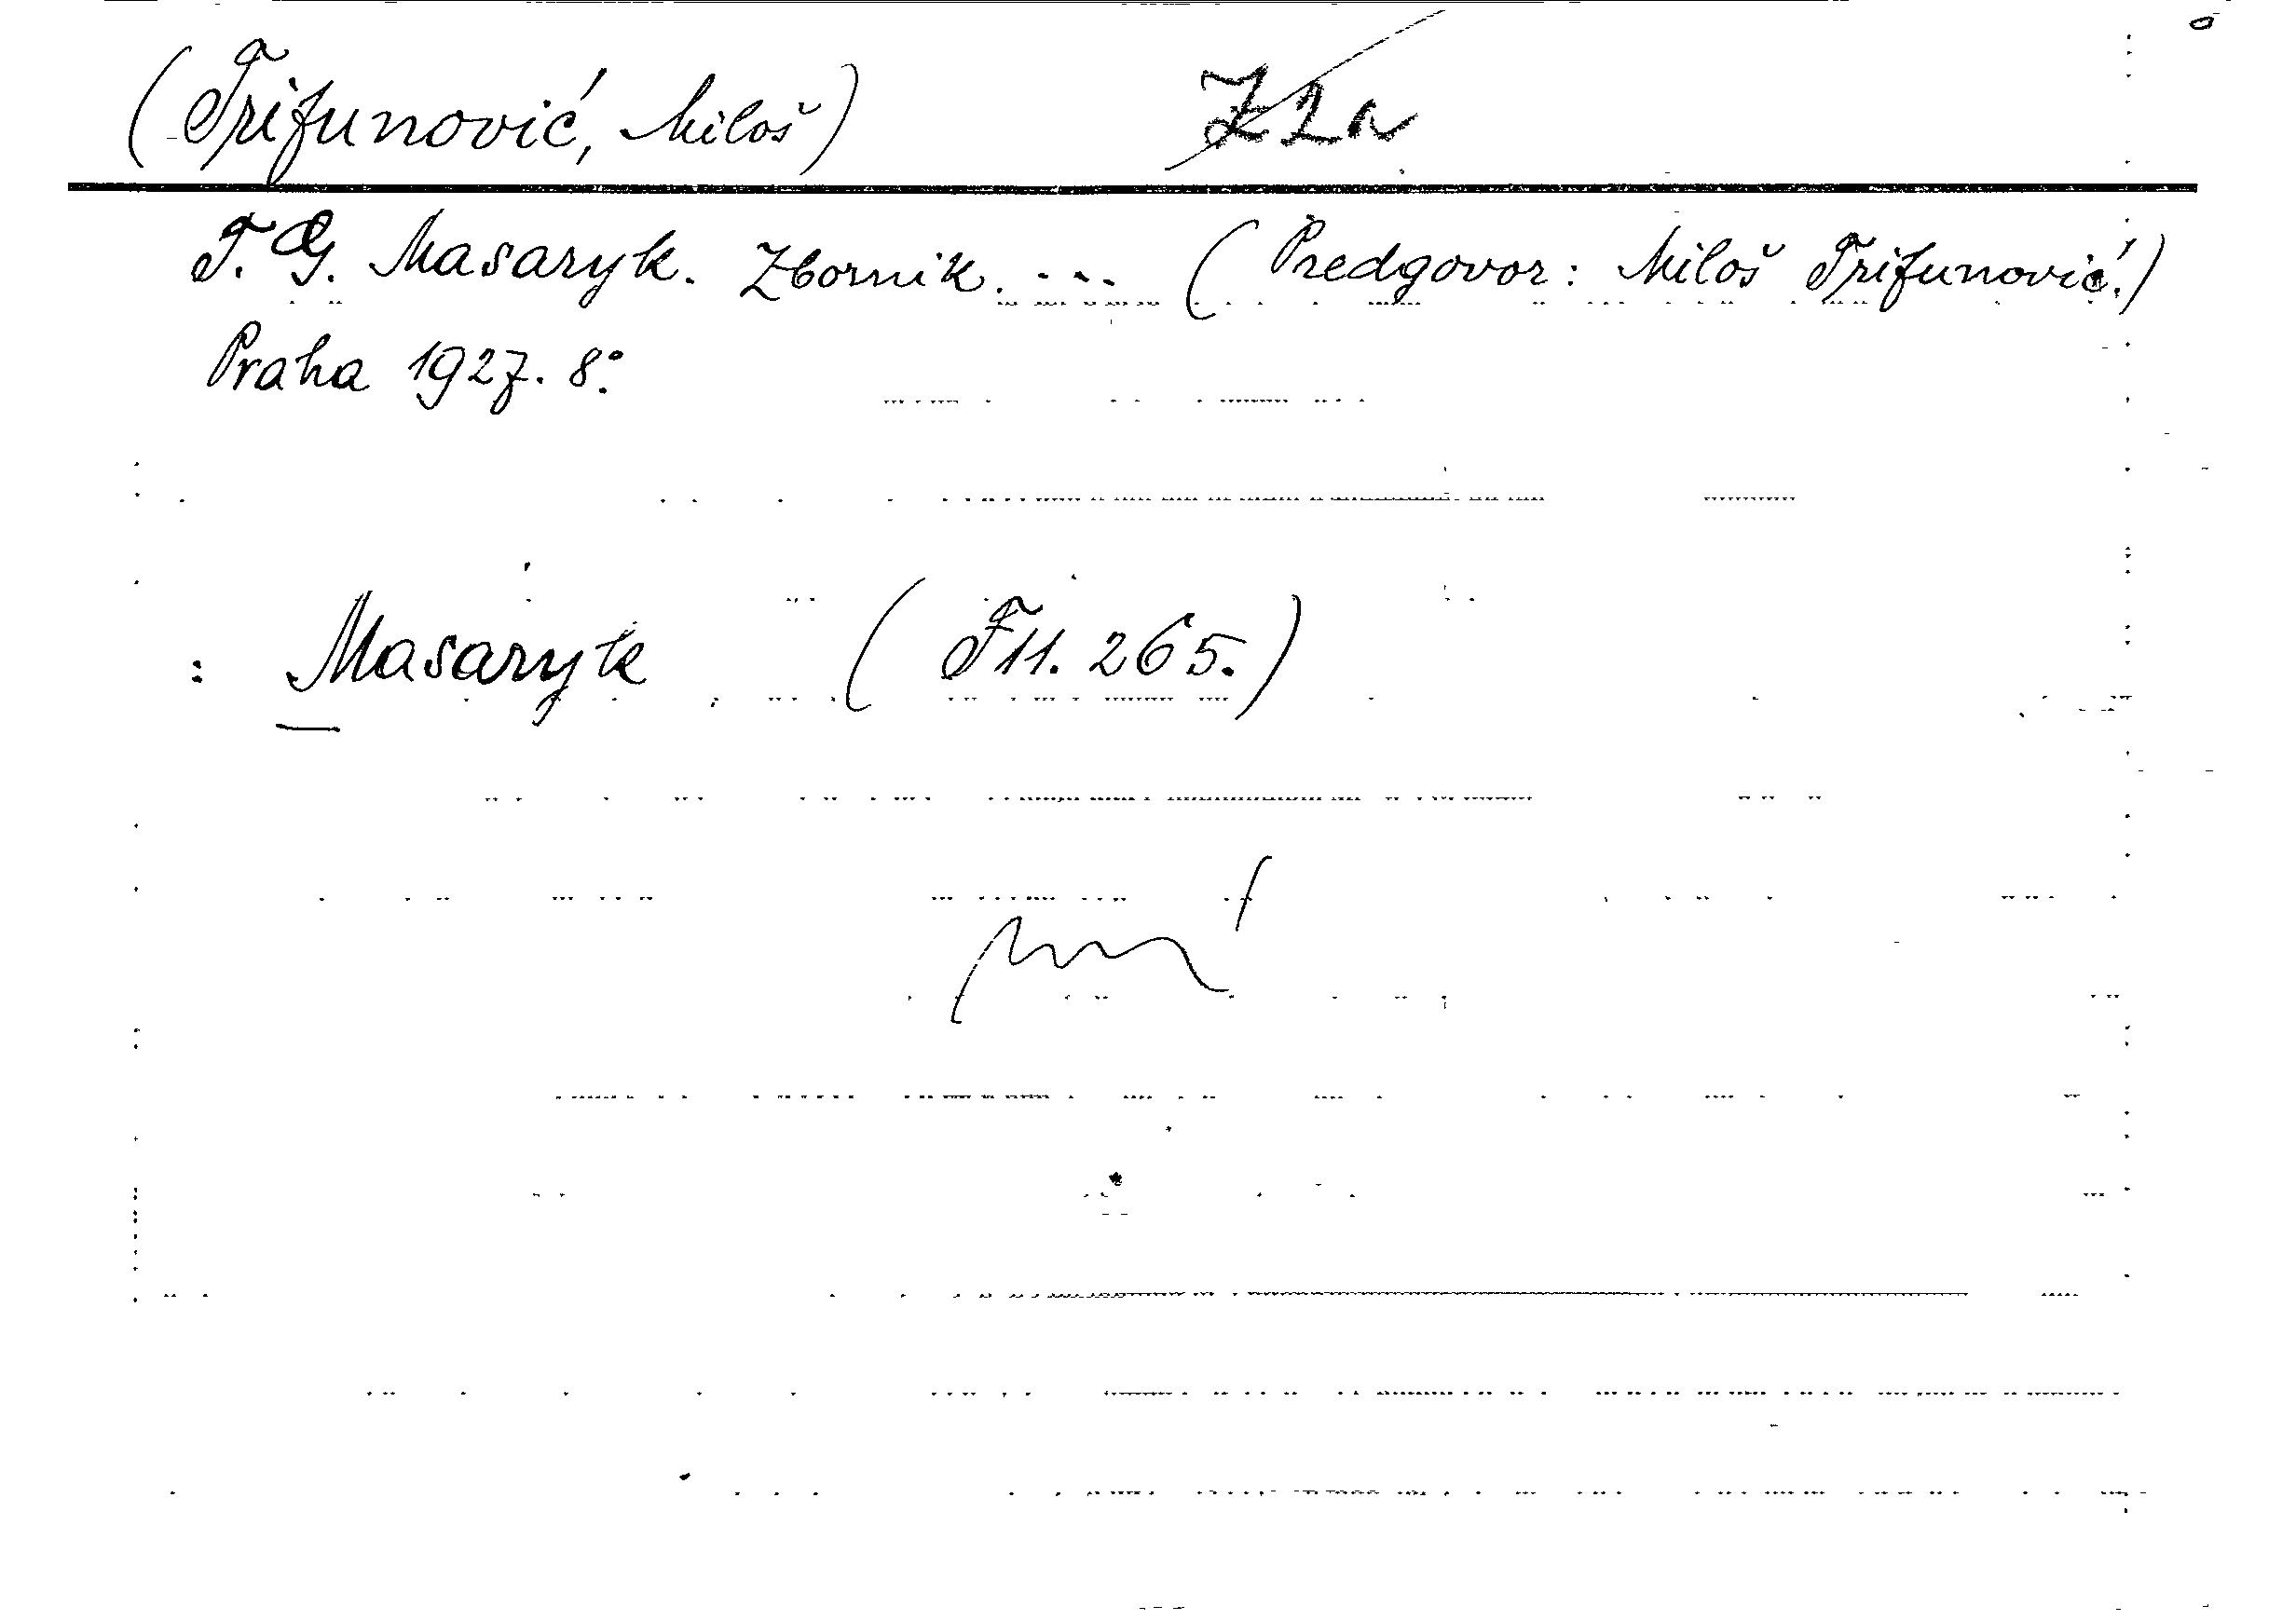 (Trifunović, Miloš)
T. G. Masaryk. Zbornik. ... (Predgovor: Miloš Trifunović.)
Praha 1927. 8°.
: Masaryk (F 11. 265.)